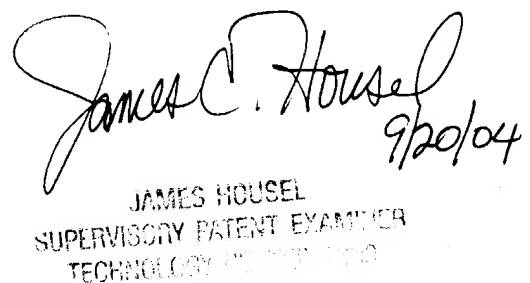 James C. Housel
9/20/04
JAMES HOUSEL
SUPERVISORY PATENT EXAMINER
TECHNOLOGY